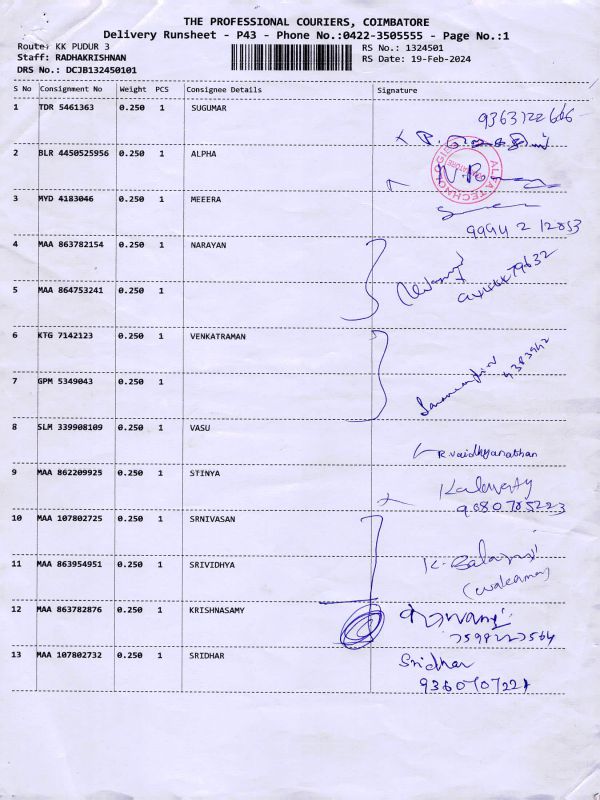 THE PROFESSIONAL COURIERS, COIMBATORE
Delivery Runsheet - P43 - Phone No.:0422-3505555 - Page No.:1
Route: KK PUDUR 3
RS No.: 1324501
Staff: RADHAKRISHNAN
RS Date: 19-Feb-2024
DRS No.: DCJB132450101
S No Consignment No Weight PCS Consignee Details Signature
1 TDR 5461363 0.250 1 SUGUMAR
2 BLR 4450525956 0.250 1 ALPHA
ALFA TECHNOLOGIES
3 MYD 4183046 0.250 1 MEEERA
99942 12853
4 MAA 863782154 0.250 1 NARAYAN
5 MAA 864753241 0.250 1
6 KTG 7142123 0.250 1 VENKATRAMAN
7 GPM 5349043 0.250 1
8 SLM 339908109 0.250 1 VASU
R Vaidhyanathan
9 MAA 862209925 0.250 1 STINYA
9080785223
10 MAA 107802725 0.250 1 SRNIVASAN
11 MAA 863954951 0.250 1 SRIVIDHYA
12 MAA 863782876 0.250 1 KRISHNASAMY
13 MAA 107802732 0.250 1 SRIDHAR
Sridhar